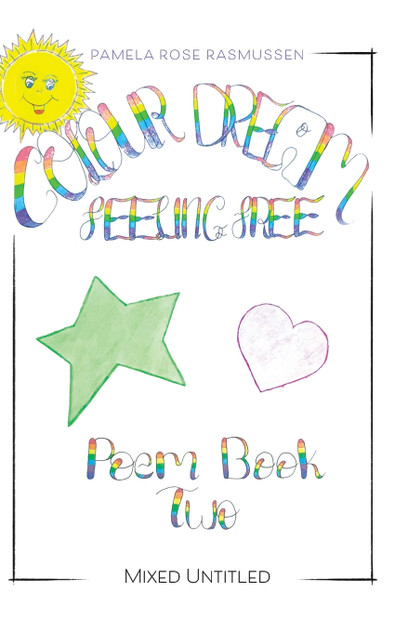 PAMELA ROSE RASMUSSEN
COLOUR DREAM
FEELING FREE
Poem Book
Two
MIXED UNTITLED